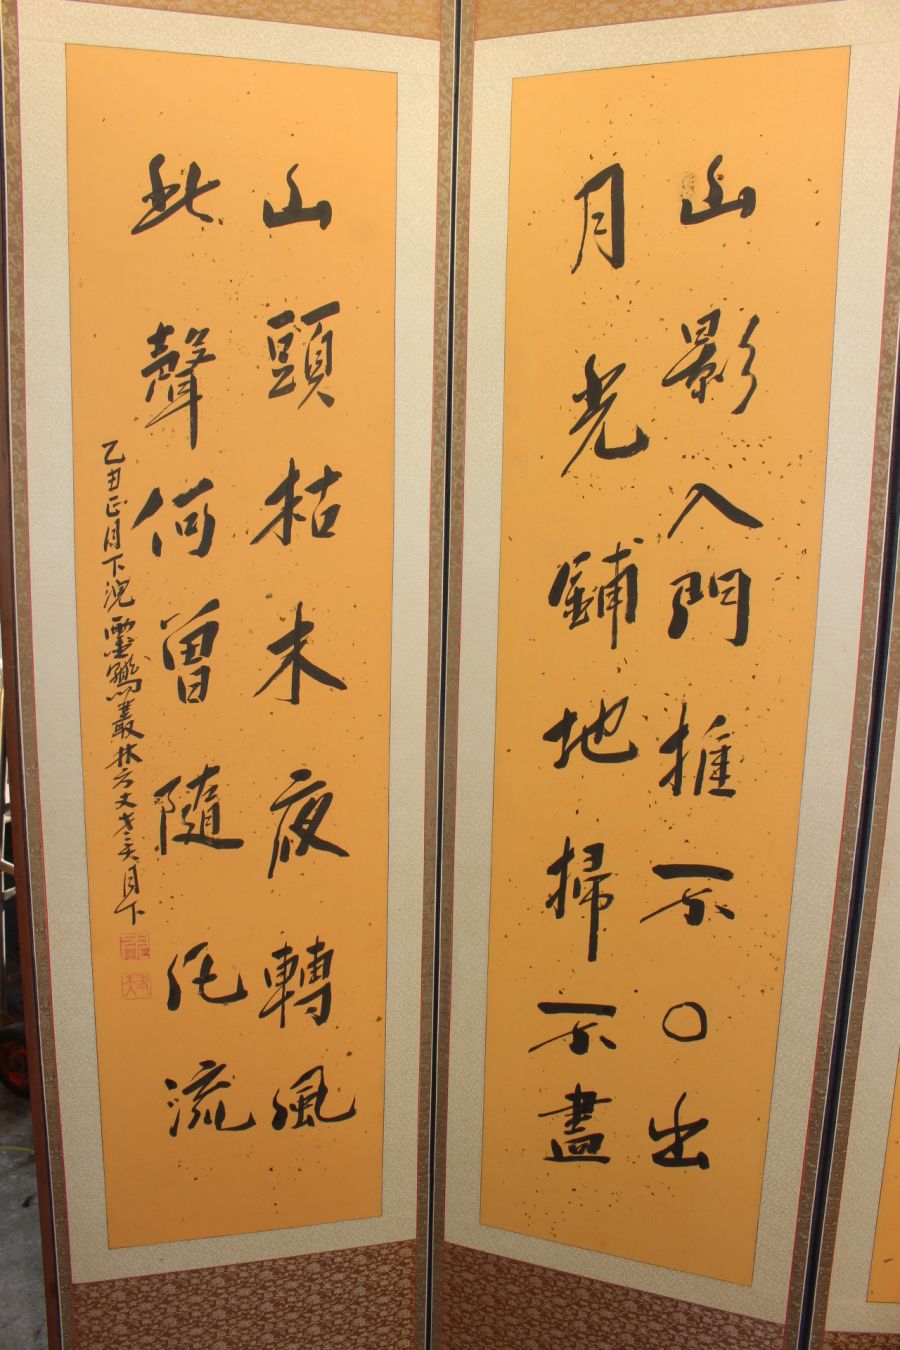 山影入門推不〇出
月光鋪地掃不盡
山頭枯木夜轉風
此聲何曾隨化流
乙丑正月下浣靈鷲叢林方丈老天月下